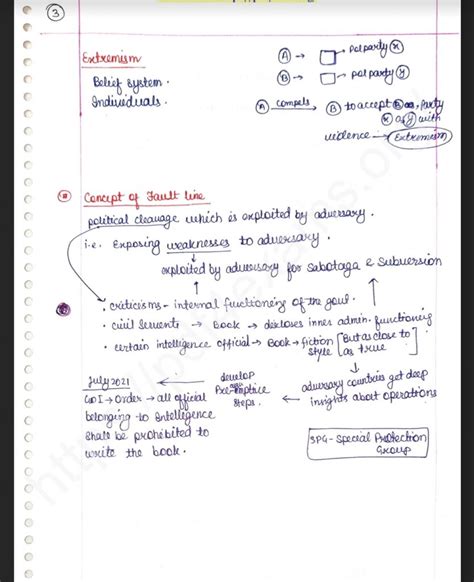 3
Extremism
Belief system.
Individuals.
A → □ → polparty x
B → □ → polparty y
A compels → B to accept party
x as y with
violence → Extremism
Concept of Fault line
political cleavage which is exploited by adversary.
i.e. Exposing weaknesses to adversary.
↓
exploited by adversary for Sabotage & Subversion
↑ ↑
• criticisms - internal functioning of the govt.
• civil servents → Book → discloses inner admin. functioning
• certain intelligence official → Book → fiction style [But as close to as true]
July 2021
GoI → Order → all official
belonging to Intelligence
shall be prohibited to
write the book.
← develop
Pre-emptice
steps.
← adversary countries get deep
insights about operations
SPG - Special Protection
Group